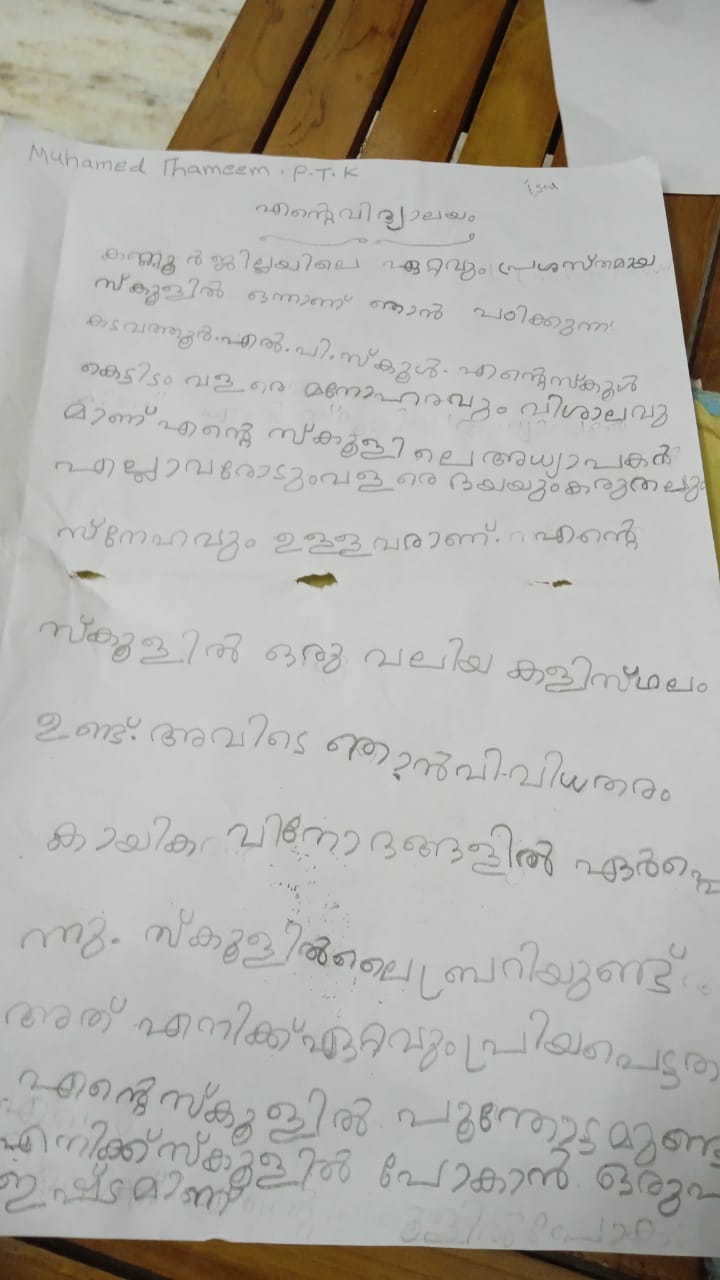 Muhamed Thameem . P.T.K
എന്റെ വിദ്യാലയം
കണ്ണൂർ ജില്ലയിലെ ഏറ്റവും പ്രശസ്തമായ
സ്കൂളിൽ ഒന്നാണ് ഞാൻ പഠിക്കുന്ന
കടവത്തൂർ.എൽ.പി.സ്കൂൾ. എന്റെ സ്കൂൾ
കെട്ടിടം വളരെ മനോഹരവും വിശാലവു
മാണ് എന്റെ സ്കൂളിലെ അധ്യാപകർ
എല്ലാവരോടും വളരെ ദയയും കരുതലും
സ്നേഹവും ഉള്ളവരാണ്. എന്റെ
സ്കൂളിൽ ഒരു വലിയ കളിസ്ഥലം
ഉണ്ട്. അവിടെ ഞാൻ വിവിധതരം
കായിക വിനോദങ്ങളിൽ ഏർപ്പെ
ന്നു. സ്കൂളിൽ ലൈബ്രറിയുണ്ട്
അത് എനിക്ക് ഏറ്റവും പ്രിയപെട്ടത
എന്റെ സ്കൂളിൽ പൂന്തോട്ടമുണ്ട
എനിക്ക് സ്കൂളിൽ പോകാൻ ഒരുപ
ഇഷ്ടമാണ്